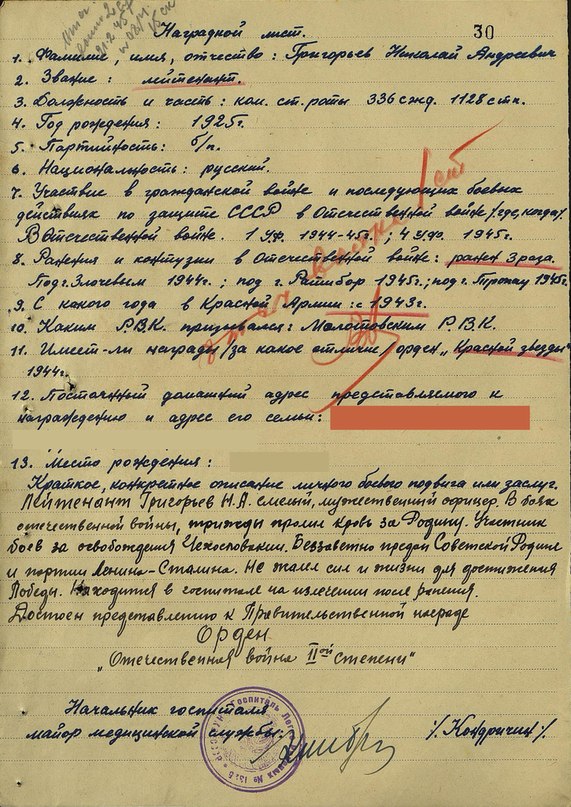 Наградной лист.
30
1. Фамилие, имя, отчество: Григорьев Николай Андреевич
2. Звание: лейтенант.
3. Должность и часть: ком. ст. роты 336 сжд. 1128 стп.
4. Год рождения: 1925г.
5. Партийность: б/п.
6. Национальность: русский.
7. Участвие в гражданской войне и последующих боевых
действиях по защите СССР в Отечественной войне /где, когда/.
В Отечественной войне. 1 Уф. 1944-45г.; 4 Уфо. 1945г.
8. Ранения и контузии в Отечественной войне: ранен 3 раза.
Под г. Злочевым 1944г.; под г. Ратибор 1945г.; под г. Тропау 1945г.
9. С какого года в Красной Армии: с 1943г.
10. Каким Р.В.К. призывался: Молотовским Р.В.К.
11. Имеет-ли награды /за какое отличие/ орден „Красной звезды"
1944г.
12. Постоянный домашний адрес представляемого к
награждению и адрес его семьи:
13. Место рождения:
Краткое, конкретное описание личного боевого подвига или заслуг.
Лейтенант Григорьев Н.А. смелый, мужественный офицер. В боях
отечественной войны, трижды пролил кровь за Родину. Участник
боев за освобождения Чехословакии. Беззаветно предан Советской Родине
и партии Ленина-Сталина. Не жалел сил и жизни для достижения
Победы. Находится в госпитале на излечении после ранения.
Достоен представлению к Правительственной награде
Орден
„Отечественная война II ой степени"
Начальник госпиталя
майор медицинской службы: /. Кондричин /.